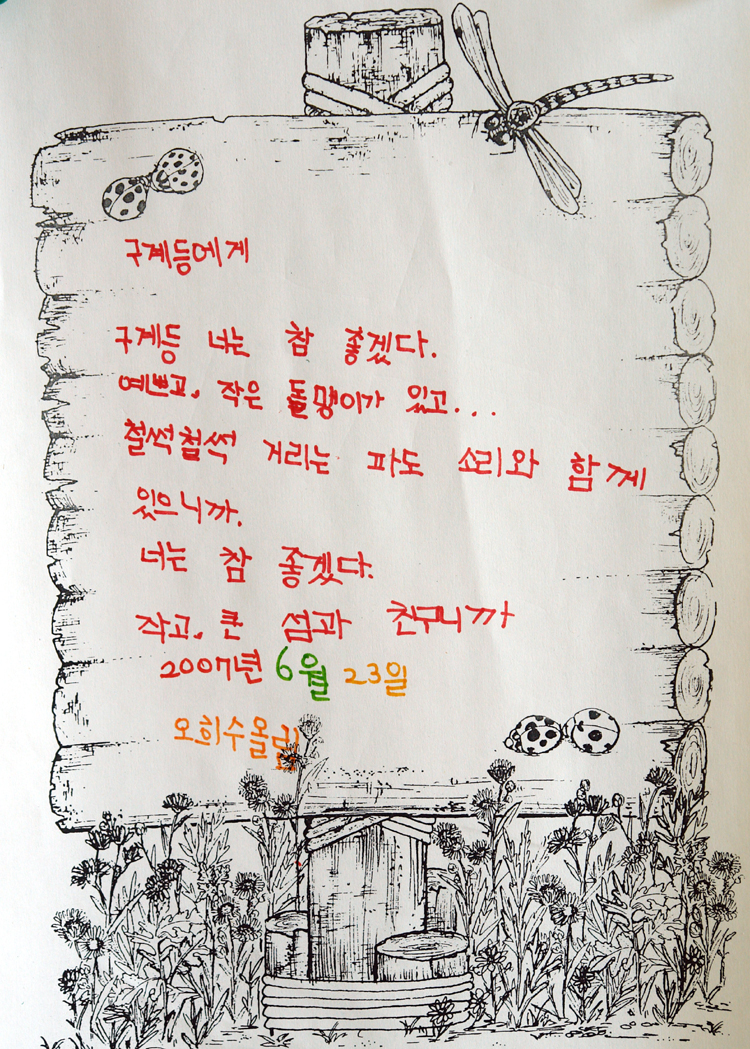 구계등에게
구계등 너는 참 좋겠다.
예쁘고, 작은 돌맹이가 있고...
철썩철썩 거리는 파도 소리와 함께
있으니까.
너는 참 좋겠다.
작고, 큰 섬과 친구니까
2007년 6월 23일
오희수올림